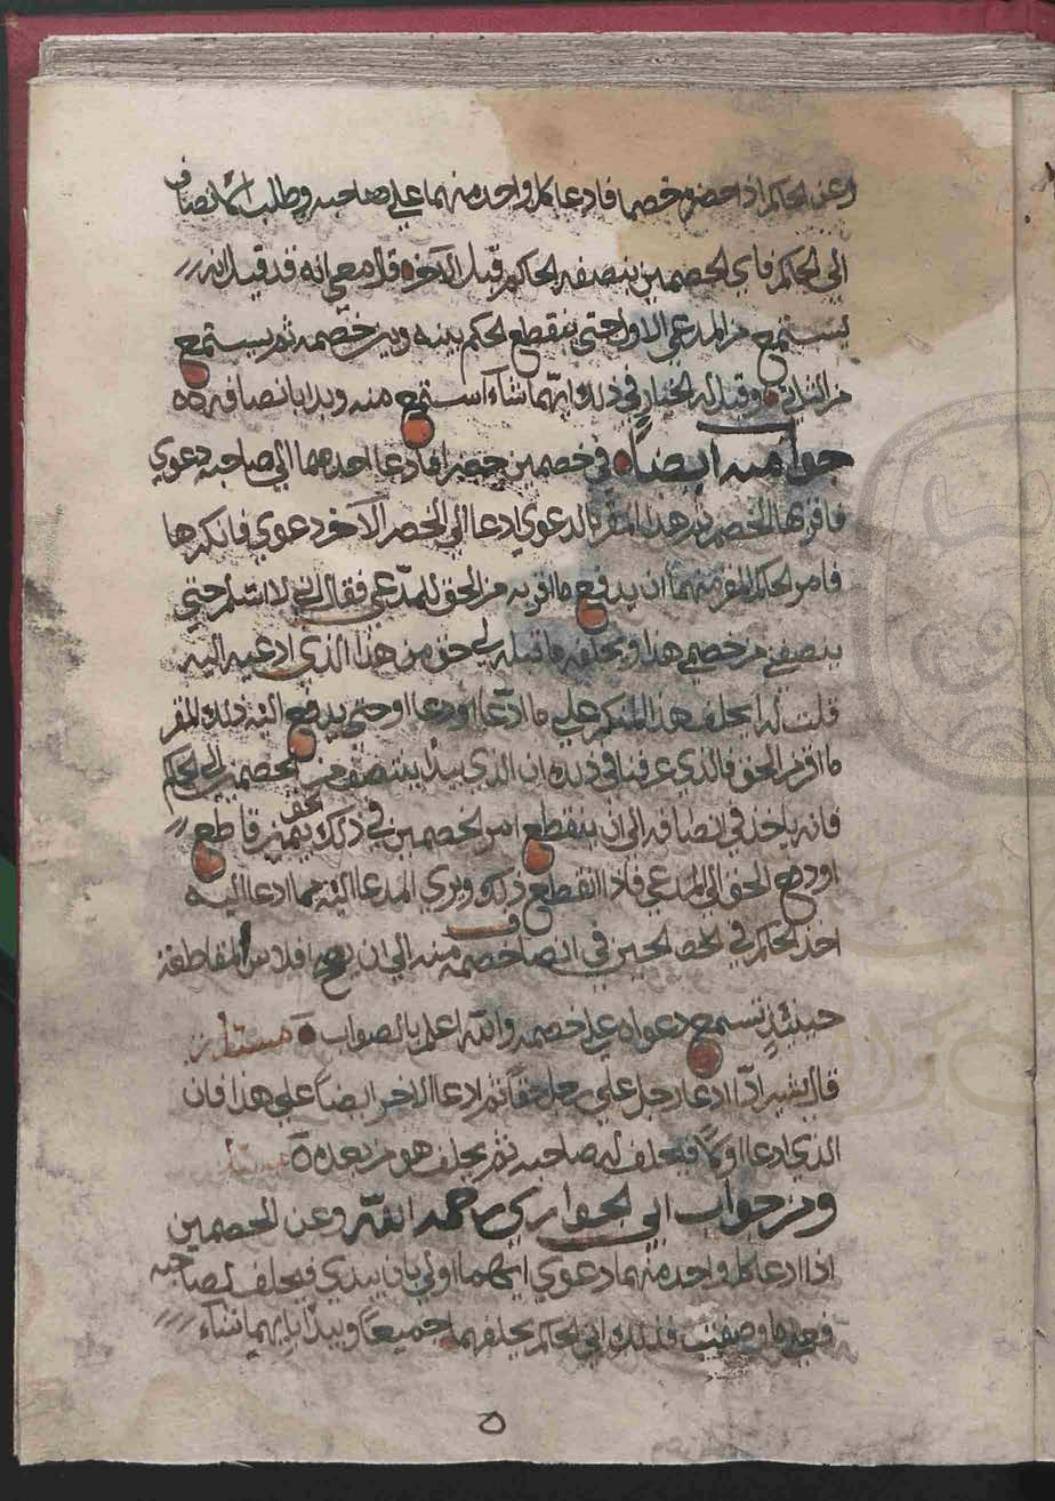 وعن الحاكم اذا حضره خصما فادعا كل واحد منهما على صاحبه وطلب الانصاف
الى الحاكم فاي الخصمين ينصفه الحاكم قبل الآخر قال معي انه قد قيل انه
يستمع من المدعي الاول حتى ينقطع الحكم بينه وبين خصمه ثم يستمع
من الثاني وقيل له الخيار في ذلك ايهما شاء استمع منه وبدا بانصافه
جوا منه ايضاً في خصمين حضرا فادعا احدهما الى صاحبه دعوي
فاقر بها الخصم ثم هذا المقر بالدعوي ادعا الى الخصم الآخر دعوي فانكرها
فامر الحاكم المقر منهما ان يدفع ما اقر به من الحق للمدعي فقال اني لا اسلم حتى
ينصفني من خصمي هذا ويحلفه ما قبله لي حق من هذا الذي ادعيه اليه
قلت له ايحلف هذا المنكر على ما ادعا اودعا او حتى يدفع اليه ذلك المقر
ما اقر من الحق فالذي عرفنا في ذلك ان الذي يبدا ينتصف من الخصمين الى الحاكم
فانه ياخذ في انصافه الى ان ينقطع امر الخصمين في ذلك بيمين قاطع
او دفع الحق الى المدعي فاذا انقطع ذلك وبري المدعا اليه مما ادعا اليه
اخذ الحاكم في الحين في انصاف خصمه منه الى ان يصح افلاس المقاطعة
حينئذٍ تسمع دعواه على خصمه والله اعلم بالصواب مسئلة
قال بشير اذا ادعا رجل على رجل حقاً ثم ادعا الاخر ايضاً على هذا فان
الذي ادعا اولاً فيحلف له صاحبه ثم يحلف هو من بعده مسئلة
ومن جواب ابي الحواري رحمه الله وعن الخصمين
اذا ادعا كل واحد منهما دعوي ايهما اولى بان يبدي فيحلف لصاحبه
فعلى ما وصفت فذلك الى الحاكم يحلفهما جميعاً ويبدا بايهما شاء